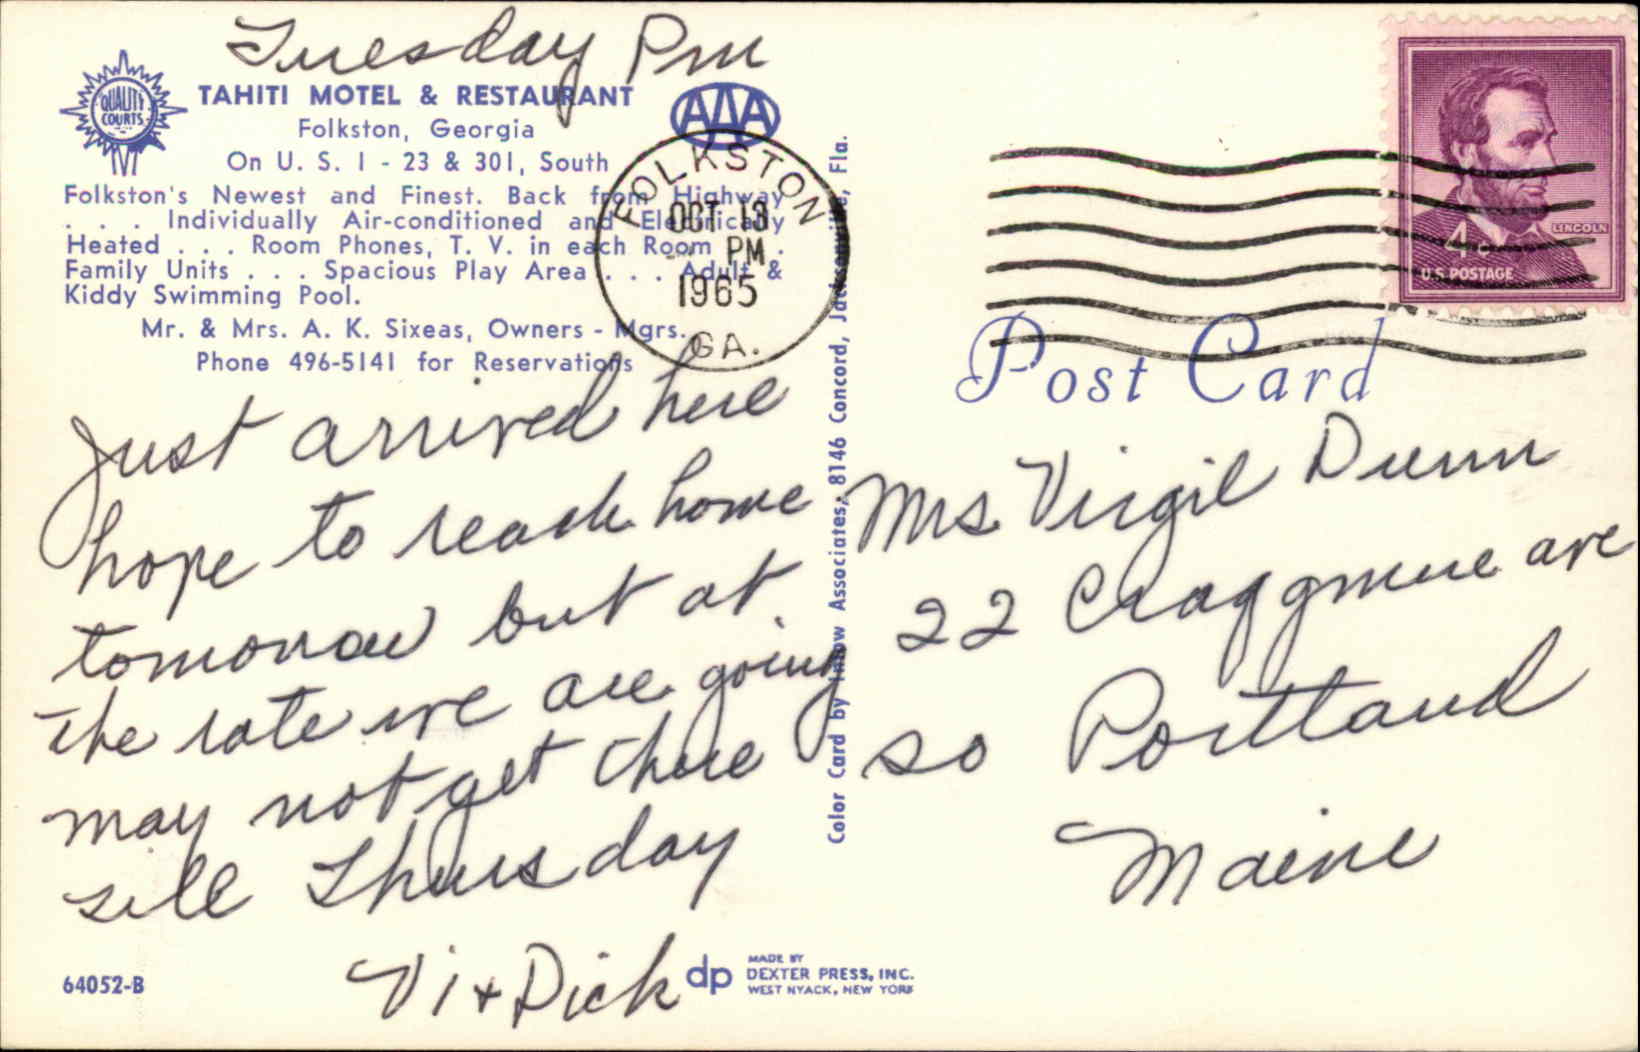 Tuesday Pm
QUALITY
COURTS
TAHITI MOTEL & RESTAURANT
Folkston, Georgia
On U. S. 1 - 23 & 301, South
Folkston's Newest and Finest. Back from Highway
. . . Individually Air-conditioned and Electrically
Heated . . . Room Phones, T. V. in each Room . . .
Family Units . . . Spacious Play Area . . . Adult &
Kiddy Swimming Pool.
Mr. & Mrs. A. K. Sixeas, Owners - Mgrs.
Phone 496-5141 for Reservations
AAA
FOLKSTON
OCT 13
PM
1965
GA.
Just arrived here
hope to reach home
tomorrow but at
the rate we are going
may not get there
till Thursday
Vi + Dick
64052-B
dp
MADE BY
DEXTER PRESS, INC.
WEST NYACK, NEW YORK
Color Card by Inlow Associates, 8146 Concord, Jacksonville, Fla.
LINCOLN
4¢
U.S. POSTAGE
Post Card
Mrs Virgil Dunn
22 Craggmere ave
So Portland
Maine